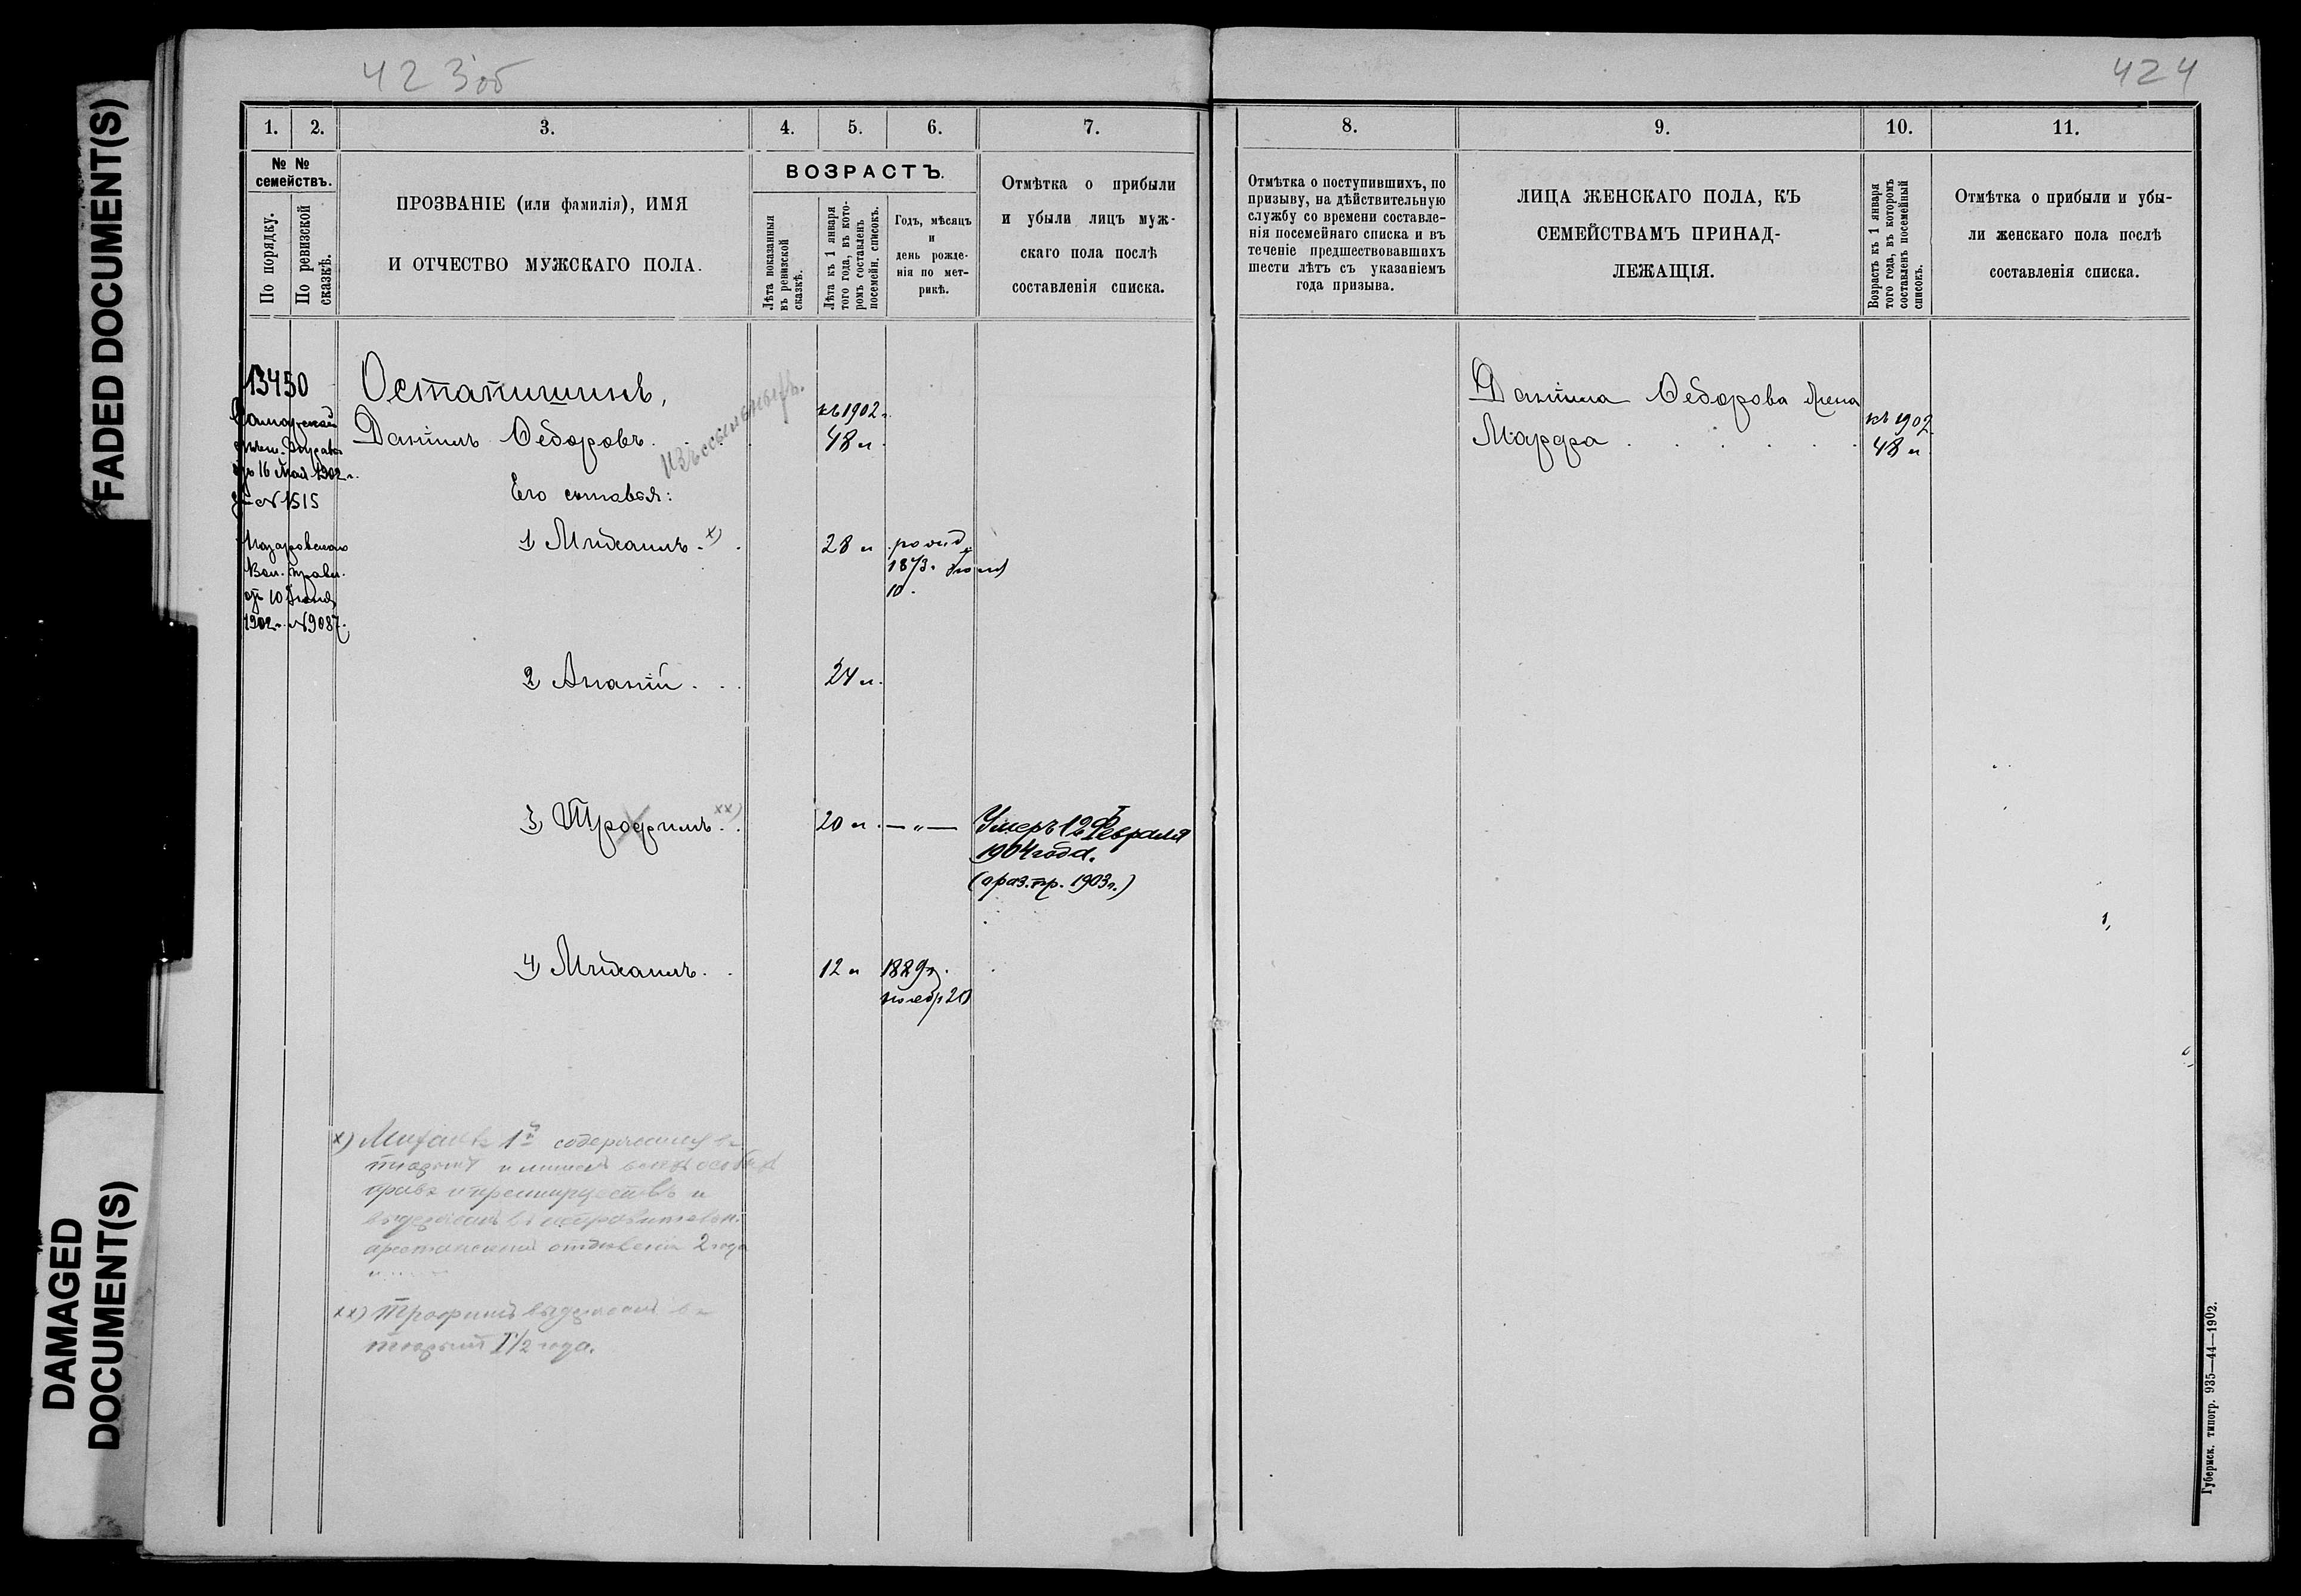 FADED DOCUMENT(S)
DAMAGED
DOCUMENT(S)
423об
424
1.
2.
3.
4.
5.
6.
7.
8.
9.
10.
11.
№ №
семействъ.
По порядку.
По ревизской
сказкѣ.
ПРОЗВАНІЕ (или фамилія), ИМЯ
И ОТЧЕСТВО МУЖСКАГО ПОЛА.
ВОЗРАСТЪ.
Лѣта показанныя
въ ревизской
сказкѣ.
Лѣта къ 1 января
того года, въ кото-
ромъ составленъ
посемейн. списокъ.
Годъ, мѣсяцъ
и
день рожде-
нія по мет-
рикѣ.
Отмѣтка о прибыли
и убыли лицъ муж-
скаго пола послѣ
составленія списка.
Отмѣтка о поступившихъ, по
призыву, на дѣйствительную
службу со времени составле-
нія посемейнаго списка и въ
теченіе предшествовавшихъ
шести лѣтъ съ указаніемъ
года призыва.
ЛИЦА ЖЕНСКАГО ПОЛА, КЪ
СЕМЕЙСТВАМЪ ПРИНАД-
ЛЕЖАЩІЯ.
Возрастъ къ 1 января
того года, въ которомъ
составленъ посемейный
списокъ.
Отмѣтка о прибыли и убы-
ли женскаго пола послѣ
составленія списка.
13450
16 Мая 1902 г.
за № 1515
Вол. правл.
отъ 10
1902 г. № 9087.
Остапишинъ,
Даніилъ Ѳедоровъ.
изъ ссыльныхъ.
къ 1902 г.
48 л.
Его сыновья:
1) Михаилъ. х)
28 л.
1873.
10.
2) Ананій
24 л.
3) Трофимъ. хх)
20 л. — „ —
Умеръ 12 Февраля
1904 года.
(о раз. пр. 1903 г.)
4) Михаилъ.
12 л.
1889 г.
ноябр 20
х) Михаилъ 1й содержался въ
тюрьмѣ и лишенъ всѣхъ особых
правъ и преимуществъ и
выдержанъ въ исправительн.
арестантскомъ отдѣленіи 2 года
хх) Трофимъ выдержанъ въ
тюрьмѣ 1 1/2 года.
Даніила Ѳедорова жена
Марфа
къ 1902
48 л
Губернск. типогр. 935—44—1902.